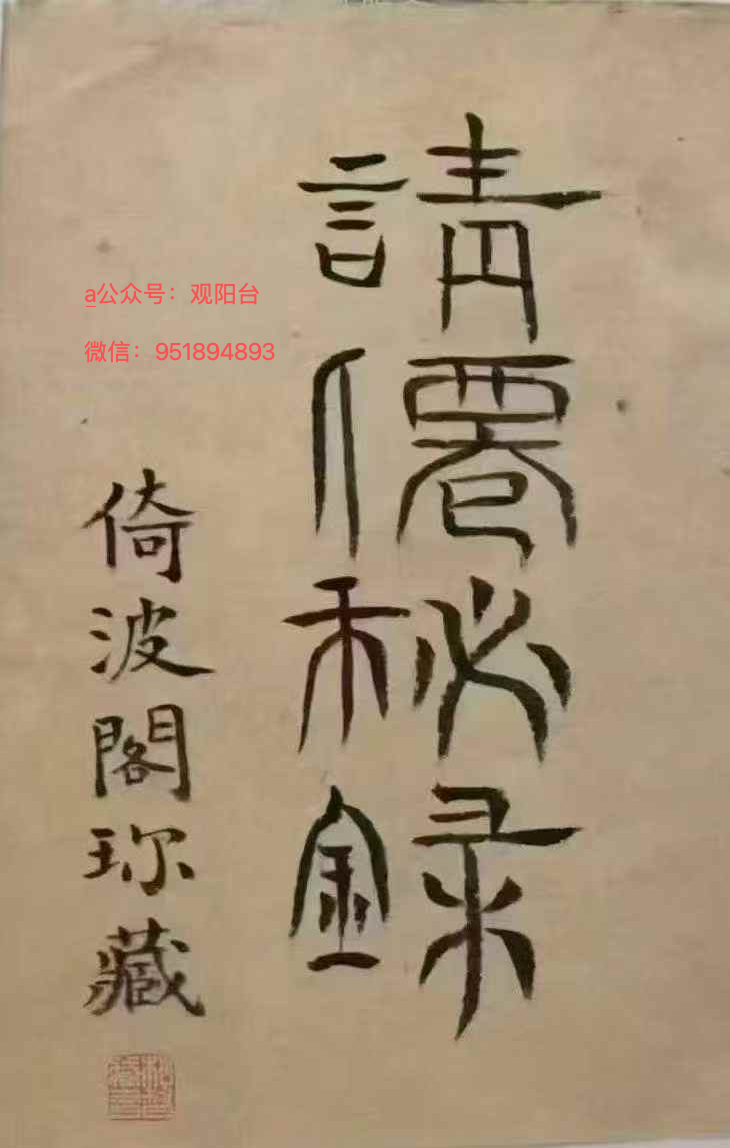 請僊秘録
倚波閣珎藏
a公众号：观阳台
微信：951894893